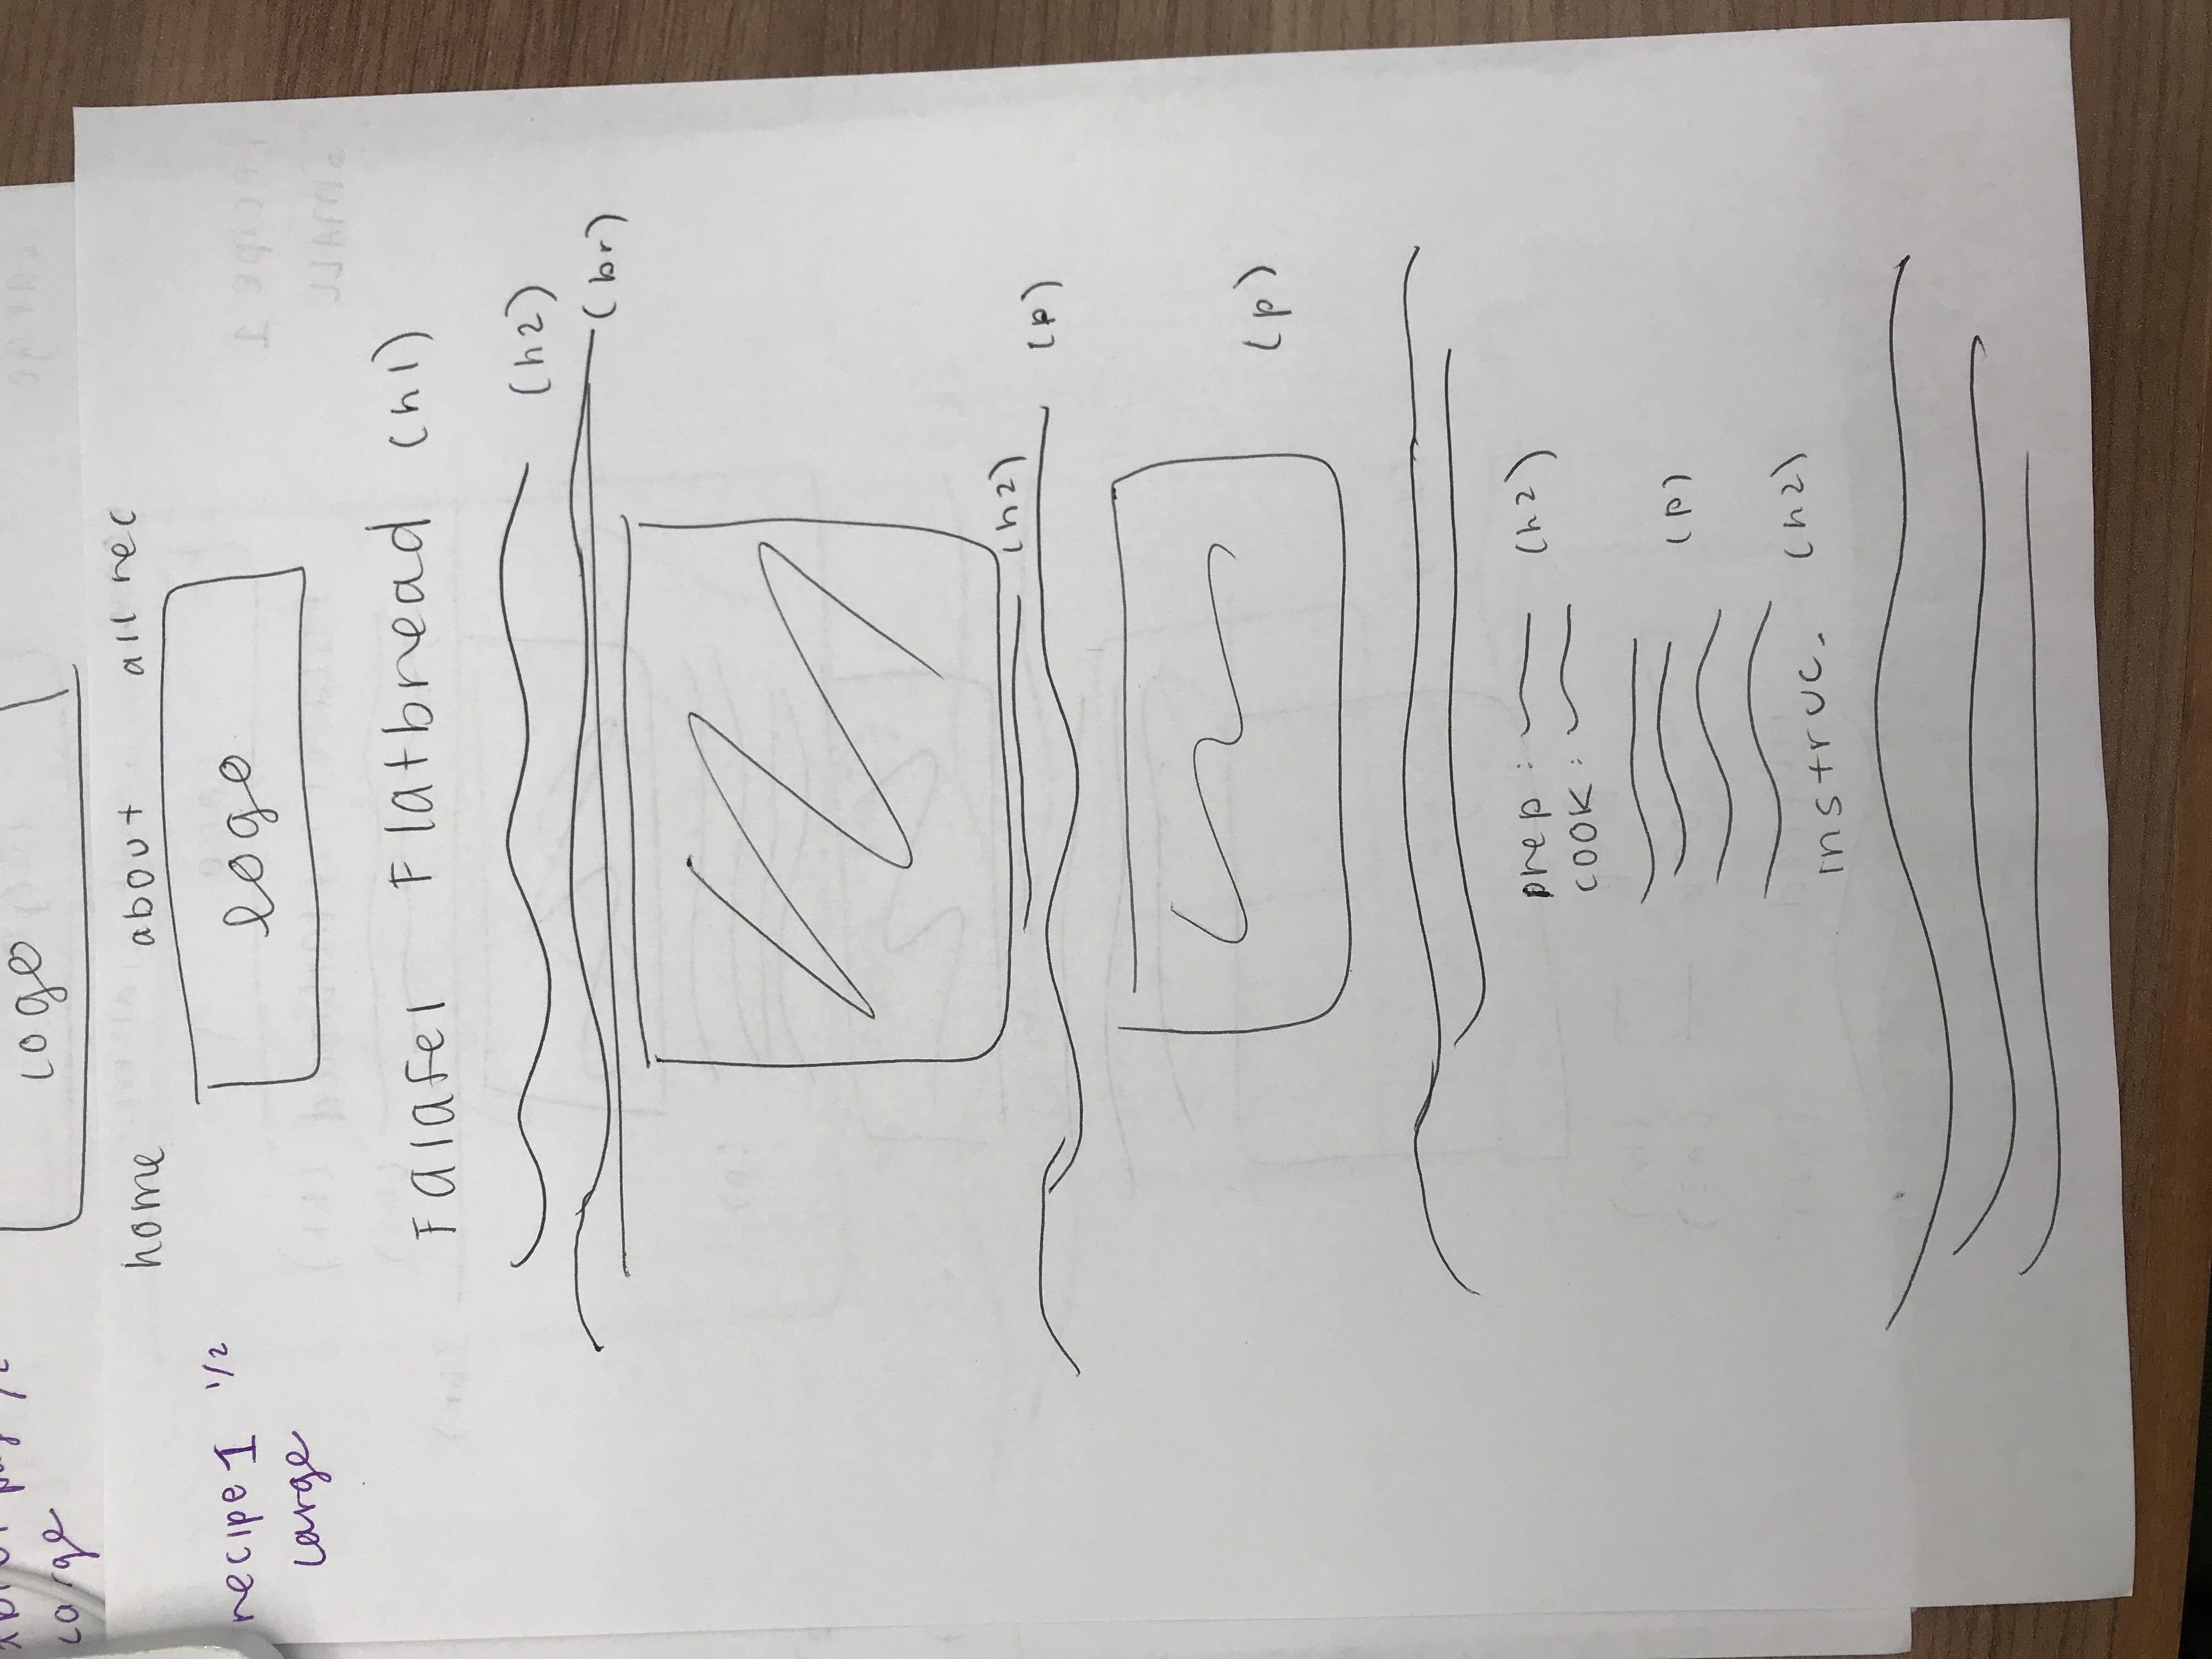 large
logo
home about all rec
logo
recipe 1 1/2
large
Falafel Flatbread (h1)
(h2)
(br)
(h2)
(p)
(p)
prep: (h2)
cook:
(p)
instruc. (h2)